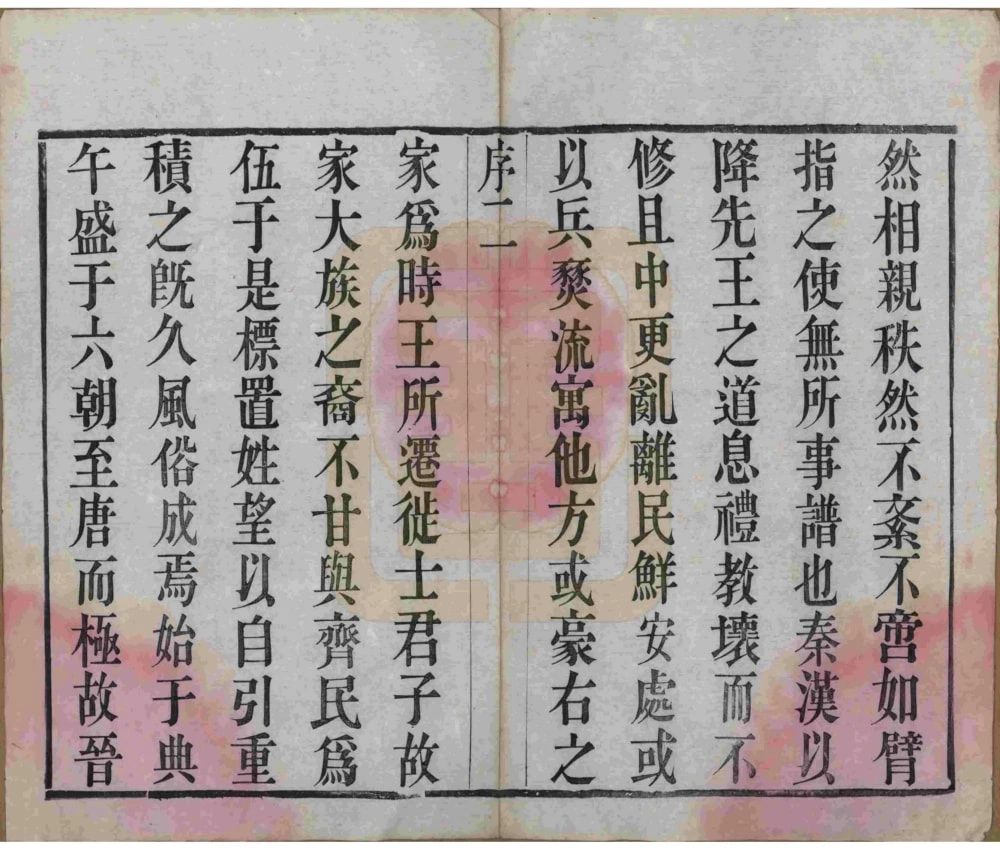 然相親秩然不紊不啻如臂
指之使無所事譜也秦漢以
降先王之道息禮教壞而不
修且中更亂離民鮮安處或
以兵燹流寓他方或豪右之
序二
家爲時王所遷徙士君子故
家大族之裔不甘與齊民爲
伍于是標置姓望以自引重
積之旣久風俗成焉始于典
午盛于六朝至唐而極故晉